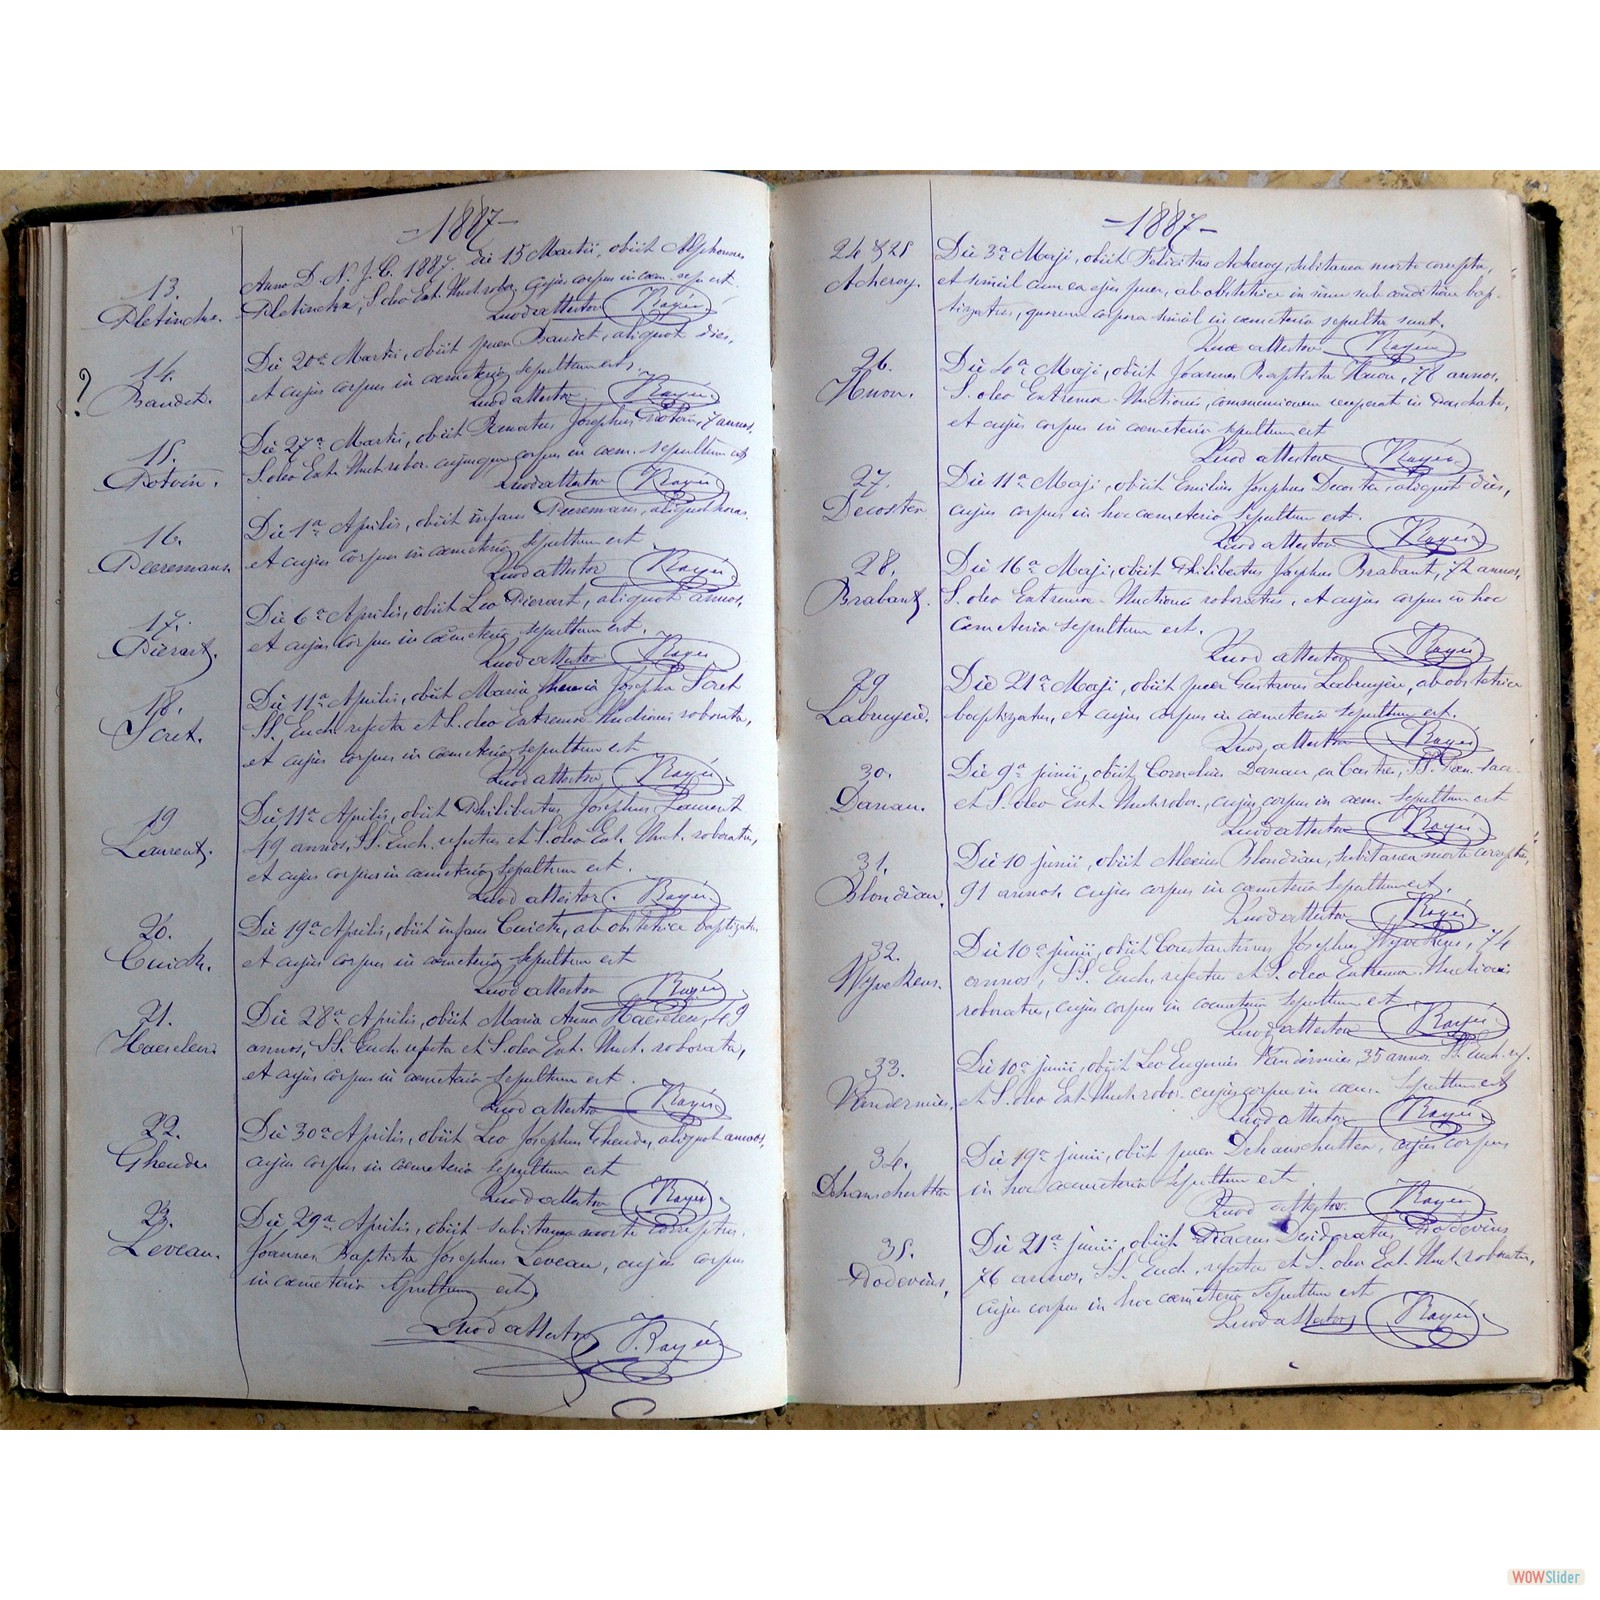 -1887-
13.
Pletinckx.
Anno D. N. J. C. 1887, die 15 Martii, obiit Alphonsus
Pletinckx, S. oleo Ext. Unct. robor. cujus corpus in coem. sep. est.
Quod attestor Rayée
?
14.
Baudet.
Die 20a Martii, obiit puer Baudet, aliquot dies,
et cujus corpus in coemeterio sepultum est.
Quod attestor Rayée
15.
Potvin.
Die 27a Martii, obiit Renatus Josephus Potvin, 7 annos,
S. oleo Ext. Unct. robor. cujusque corpus in coem. sepultum est
Quod attestor Rayée
16.
Peeremans
Die 1a Aprilis, obiit infans Peeremans, aliquot horas
et cujus corpus in coemeterio sepultum est
Quod attestor Rayée
17.
Pierart.
Die 6a Aprilis, obiit Leo Pierart, aliquot annos,
et cujus corpus in coemeterio sepultum est.
Quod attestor Rayée
18.
Scret.
Die 11a Aprilis, obiit Maria Theresia Josepha Scret
SS. Euch. refecta et S. oleo Extrema Unctionis roborata,
et cujus corpus in coemeterio sepultum est
Quod attestor Rayée
19
Laurent.
Die 11a Aprilis, obiit Philibertus Josephus Laurent
49 annos, SS. Euch. refectus et S. oleo Ext. Unct. roboratus,
et cujus corpus in coemeterio sepultum est.
Quod attestor. Rayée
20.
Cuick.
Die 19a Aprilis, obiit infans Cuick, ab obstetrice baptizatus
et cujus corpus in coemeterio sepultum est
Quod attestor Rayée
21.
Haeselen.
Die 28a Aprilis, obiit Maria Anna Haeselen, 49
annos, SS. Euch. refecta et S. oleo Ext. Unct. roborata,
et cujus corpus in coemeterio sepultum est.
Quod attestor Rayée
22.
Gheude
Die 30a Aprilis, obiit Leo Josephus Gheude, aliquot annos,
cujus corpus in coemeterio sepultum est
Quod attestor Rayée
23.
Leveau.
Die 29a Aprilis, obiit subitanea morte correptus,
Joannes Baptista Josephus Leveau, cujus corpus
in coemeterio sepultum est,
Quod attestor P. Rayée
-1887-
24 & 25
Acheroy.
Die 3a Maji, obiit Felicitas Acheroy, subitanea morte correpta,
et simul cum ea ejus puer, ab obstetrice in sinu sub conditione bap-
tizatus, quorum corpora simul in coemeterio sepulta sunt.
Quae attestor Rayée
26.
Huon.
Die 4a Maji, obiit Joannes Baptista Huon, 78 annos,
S. oleo Extrema Unctionis, communionem in Paschate,
et cujus corpus in coemeterio sepultum est
Quod attestor Rayée
27.
Decoster
Die 11a Maji, obiit Emilius Josephus Decoster, aliquot dies,
cujus corpus in hoc coemeterio sepultum est.
Quod attestor Rayée
28.
Brabant.
Die 16a Maji, obiit Philibertus Josephus Brabant, 72 annos,
S. oleo Extrema Unctionis roboratus, et cujus corpus in hoc
coemeterio sepultum est.
Quod attestor Rayée
29
Labruyère.
Die 21a Maji, obiit puer Gustavus Labruyère, ab obstetrice
baptizatus, et cujus corpus in coemeterio sepultum est.
Quod attestor Rayée
30.
Danau.
Die 9a junii, obiit Cornelius Danau, ex Castre, SS. Poen. Sacr.
et S. oleo Ext. Unct. robor., cujus corpus in coem. sepultum est
Quod attestor Rayée
31.
Blondiau.
Die 10 junii, obiit Blondiau, subitanea morte correptus,
91 annos, cujus corpus in coemeterio sepultum est.
Quod attestor Rayée
32.
Wyvekens.
Die 10a junii, obiit Constantinus Josephus Wyvekens, 74
annos, SS. Euch. refectus et S. oleo Extrema Unctionis
roboratus, cujus corpus in coemeterio sepultum est
Quod attestor Rayée
33.
Vandermies.
Die 10a junii, obiit Leo Eugenius Vandermies, 35 annos SS. Euch. ref.
et S. oleo Ext. Unct. robor. cujus corpus in coem. sepultum est
Quod attestor Rayée
34.
Dehanschutter
Die 19a junii, obiit puer Dehanschutter, cujus corpus
in hoc coemeterio sepultum est
Quod attestor. Rayée
35.
Dodevins,
Die 21a junii, obiit Desideratus Dodevins
76 annos, SS. Euch. refectus et S. oleo Ext. Unct. roboratus,
cujus corpus in hoc coemeterio sepultum est
Quod attestor Rayée
WOWSlider